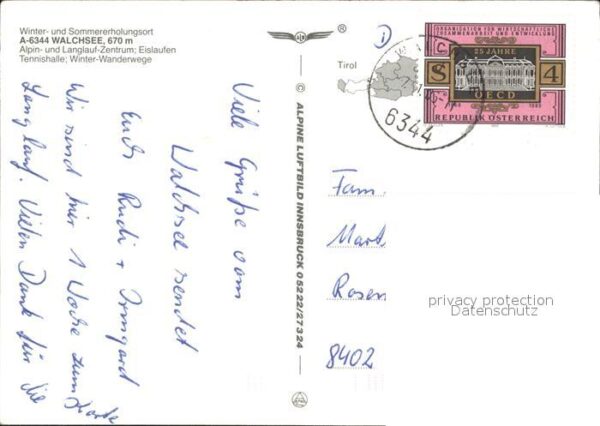 Winter- und Sommererholungsort
A-6344 WALCHSEE, 670 m
Alpin- und Langlauf-Zentrum; Eislaufen
Tennishalle; Winter-Wanderwege
®
Tirol
© ALPINE LUFTBILD INNSBRUCK 05222/27324
ORGANISATION FÜR WIRTSCHAFTLICHE
ZUSAMMENARBEIT UND ENTWICKLUNG
25 JAHRE
S 4
OECD
REPUBLIK ÖSTERREICH
6344
Viele Grüße vom
Walchsee sendet
Euch Rudi + Irmgard
Wir sind hier 1 Woche zum
Langlauf. Vielen Dank für die
Karte
Fam.
Mart
Rosen
8402
privacy protection
Datenschutz